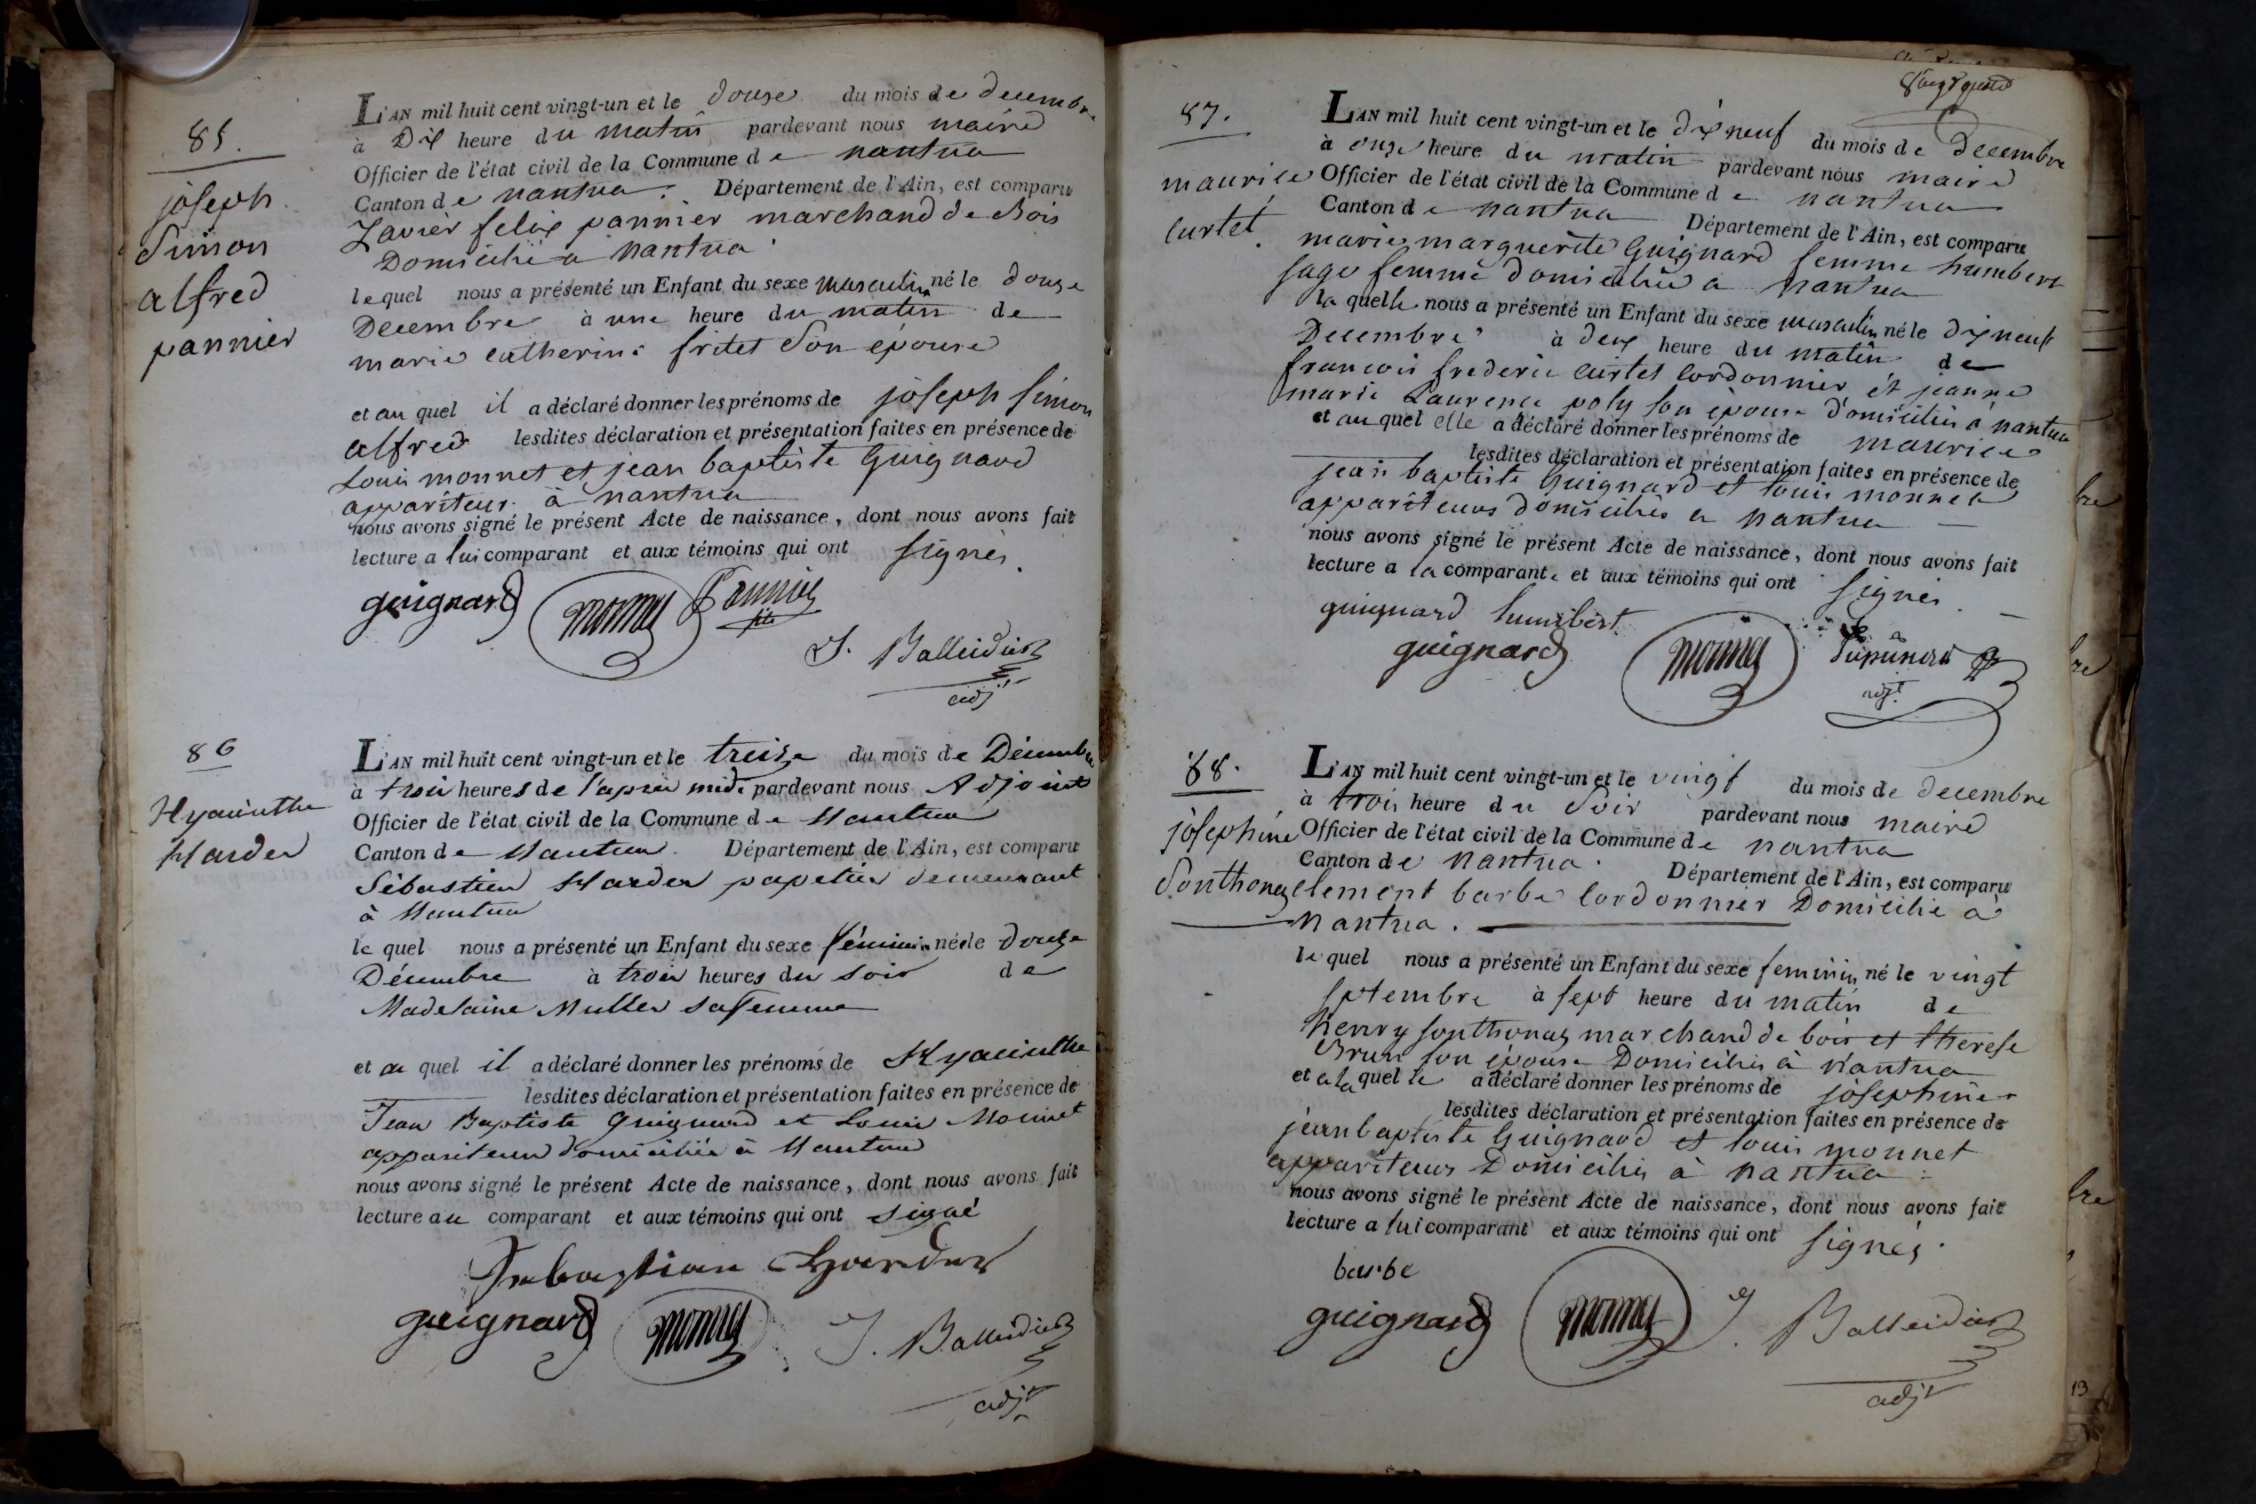 85.
joseph
Simon
alfred
pannier
L'AN mil huit cent vingt-un et le douze du mois de decembre
à Dix heure du matin pardevant nous maire
Officier de l'état civil de la Commune de nantua
Canton de nantua. Département de l'Ain, est comparu
Xavier felix pannier marchand de Bois
Domicilié a Nantua
lequel nous a présenté un Enfant du sexe masculin né le douze
Decembre à une heure du matin de
marie catherine fritet Son épouse
et au quel il a déclaré donner les prénoms de joseph Simon
alfred lesdites déclaration et présentation faites en présence de
Louis monnet et jean baptiste Guignard
appariteurs à nantua
nous avons signé le présent Acte de naissance, dont nous avons fait
lecture a lui comparant et aux témoins qui ont signés.
guignard monnet Pannier fils
J. Balleidier
adjt
86
Hyacinthe
Harder
L'AN mil huit cent vingt-un et le treize du mois de Décembre
à trois heures de l'après midi pardevant nous Adjoint
Officier de l'état civil de la Commune de Nantua
Canton de Nantua. Département de l'Ain, est comparu
Sébastien Harder papetier demeurant
à Nantua
le quel nous a présenté un Enfant du sexe féminin née le Douze
Décembre à trois heures du soir de
Madelaine Muller sa femme
et a quel il a déclaré donner les prénoms de Hyacinthe
lesdites déclaration et présentation faites en présence de
Jean Baptiste Guignard et Louis Monnet
appariteurs domiciliés à Nantua
nous avons signé le présent Acte de naissance, dont nous avons fait
lecture au comparant et aux témoins qui ont signé
Sebastian Harder
guignard monnet J. Balleidier
adjt
87.
maurice
Curtet.
L'AN mil huit cent vingt-un et le dix neuf du mois de Decembre
à onze heure du matin pardevant nous maire
Officier de l'état civil de la Commune de nantua
Canton de nantua Département de l'Ain, est comparu
marie marguerite Guignard femme humbert
sage femme domiciliée a nantua
la quelle nous a présenté un Enfant du sexe masculin né le dix neuf
Decembre à deux heure du matin de
francois frederic Curtet Cordonnier et jeanne
marie Laurence poly son épouse domiciliés à nantua
et au quel elle a déclaré donner les prénoms de maurice
lesdites déclaration et présentation faites en présence de
jean baptiste Guignard et louis monnet
appariteurs domiciliés a nantua
nous avons signé le présent Acte de naissance, dont nous avons fait
lecture a la comparante et aux témoins qui ont signés.
guignard humbert
guignard monnet
adjt.
88.
joséphine
Sonthonax
L'AN mil huit cent vingt-un et le vingt du mois de decembre
à trois heure du Soir pardevant nous maire
Officier de l'état civil de la Commune de nantua
Canton de nantua. Département de l'Ain, est comparu
clement barbe Cordonnier Domicilié à
nantua.
le quel nous a présenté un Enfant du sexe feminin né le vingt
septembre à sept heure du matin de
henry Sonthonax marchand de bois et therese
Brun son épouse Domiciliés à nantua
et a la quel le a déclaré donner les prénoms de joséphine
lesdites déclaration et présentation faites en présence de
jean baptiste Guignard et louis monnet
appariteurs Domiciliés à nantua
nous avons signé le présent Acte de naissance, dont nous avons fait
lecture a lui comparant et aux témoins qui ont signés.
barbe
guignard monnet J. Balleidier
adjt
bre
bre
bre
13